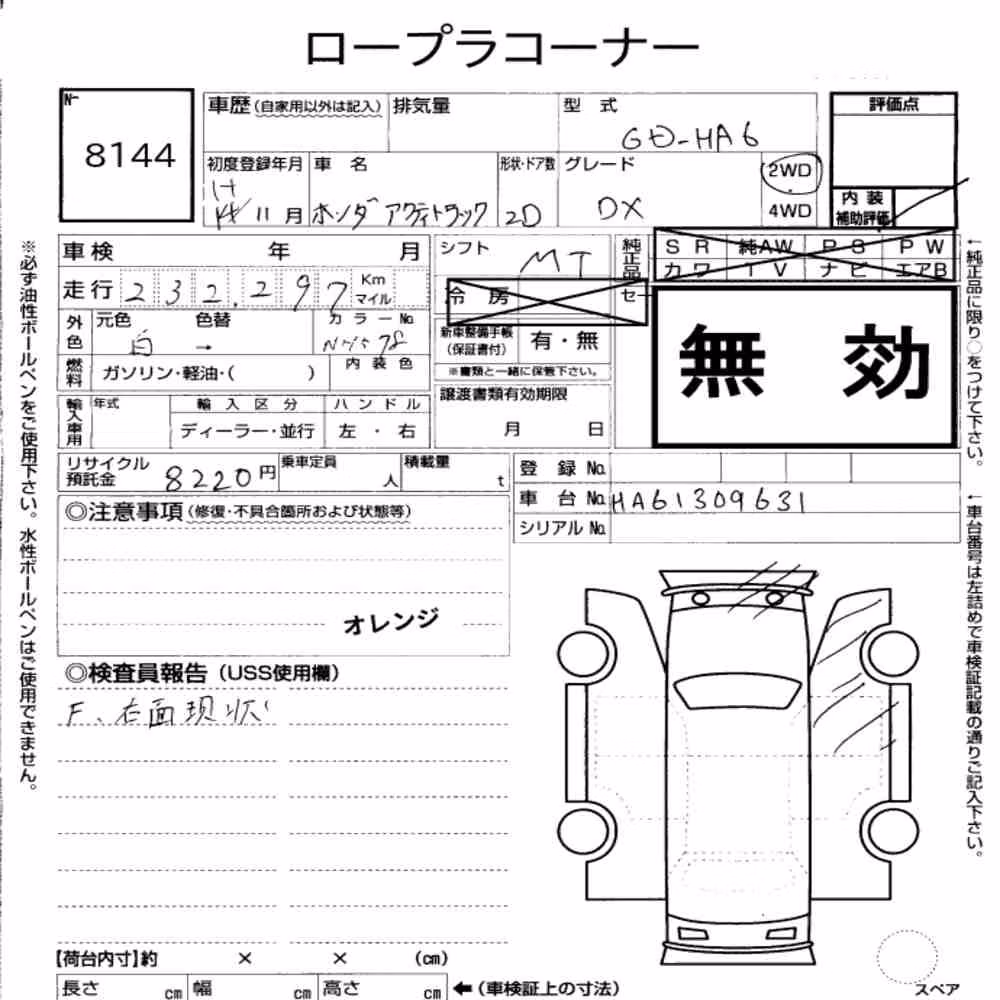 ロープラコーナー
No
8144
車歴(自家用以外は記入) 排気量 型 式
GD-HA6
評価点
初度登録年月 車 名 形状・ドア数 グレード 2WD
H
14 11月 ホンダ アクティトラック 2D DX
4WD
内 装
補助評価
車検 年 月
シフト MT
純正品
SR 純AW PS PW
カワ TV ナビ エアB
走行 232,297 Km
マイル
冷房
セー
外色 元色 色替 カラーNo
白 →
新車整備手帳
(保証書付) 有・無
※書類と一緒に保管下さい。
無 効
燃料 ガソリン・軽油・( ) 内装色
譲渡書類有効期限
月 日
輸入車用 年式 輸入区分 ハンドル
ディーラー・並行 左・右
リサイクル
預託金 8220円 乗車定員 人 積載量 t
登 録 No.
車 台 No. HA61309631
シリアル No.
◎注意事項(修復・不具合箇所および状態等)
オレンジ
◎検査員報告(USS使用欄)
F、右面現状
【荷台内寸】約 × × (cm)
長さ cm 幅 cm 高さ cm ←(車検証上の寸法)
スペア
※必ず油性ボールペンをご使用下さい。水性ボールペンはご使用できません。
←純正品に限り○をつけて下さい。
←車台番号は左詰めで車検証記載の通りご記入下さい。